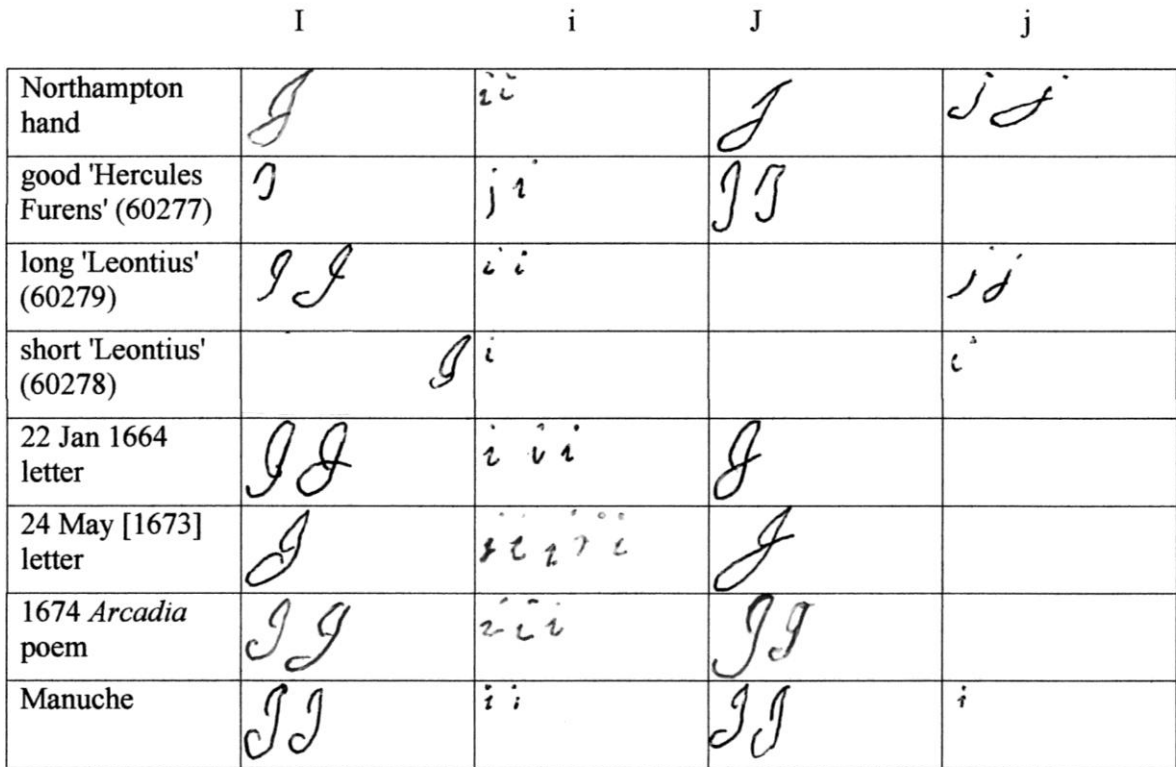 I i J j
Northampton hand J i i J j j
good 'Hercules Furens' (60277) J j i J J
long 'Leontius' (60279) J J i i j j
short 'Leontius' (60278) J i i
22 Jan 1664 letter J J i i i J
24 May [1673] letter J i i i i i J
1674 Arcadia poem J J i i i J J
Manuche J J i i J J i